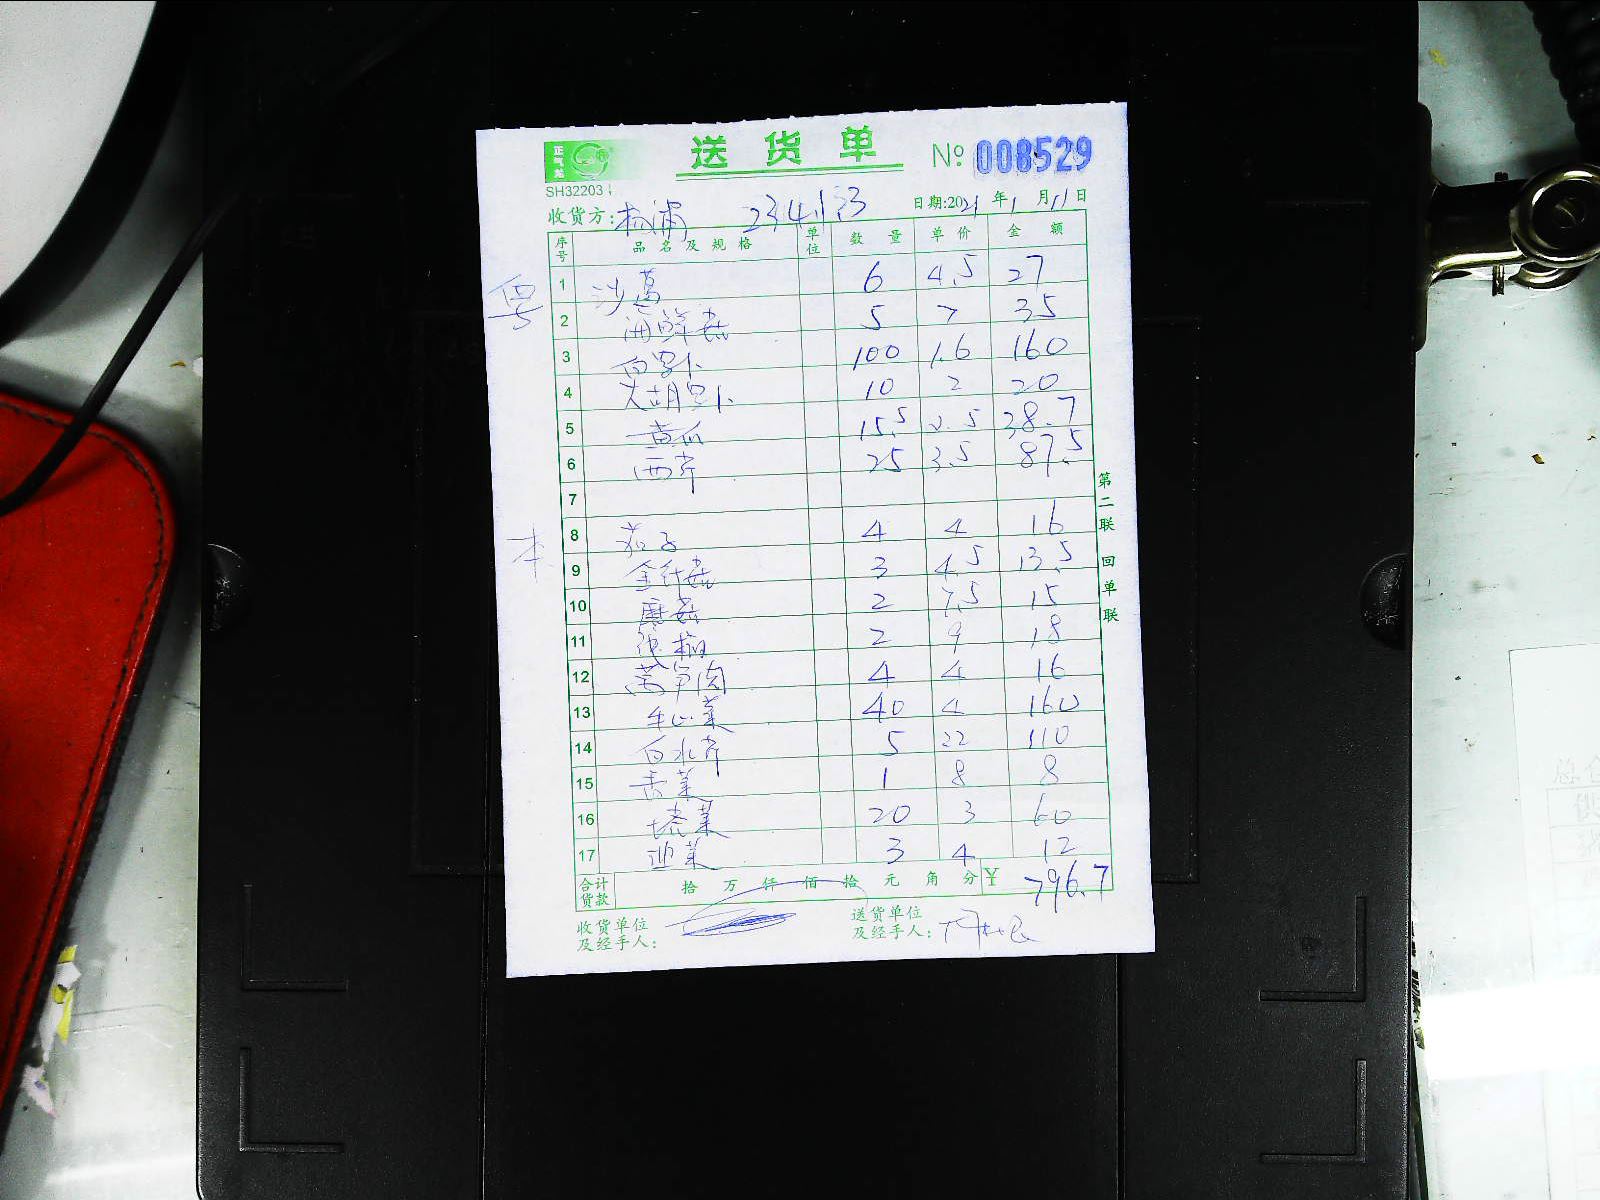 正气龙
送货单 № 008529
SH32203
收货方: 杨浦 234.1.33 日期:2021年1月11日
序号 品名及规格 单位 数量 单价 金额
1 沙葛 6 4.5 27
2 海鲜菇 5 7 35
3 白罗卜 100 1.6 160
4 大胡罗卜 10 2 20
5 黄瓜 15.5 2.5 38.7
6 西芹 25 3.5 87.5
7
本
8 茄子 4 4 16
9 金针菇 3 4.5 13.5
10 蘑菇 2 7.5 15
11 2 9 18
12 莴笋肉 4 4 16
13 牛心菜 40 4 160
14 白水芹 5 22 110
15 香菜 1 8 8
16 塔菜 20 3 60
17 韭菜 3 4 12
合计货款 拾 万 仟 佰 拾 元 角 分 ¥ 796.7
收货单位及经手人:
送货单位及经手人:
第二联 回单联